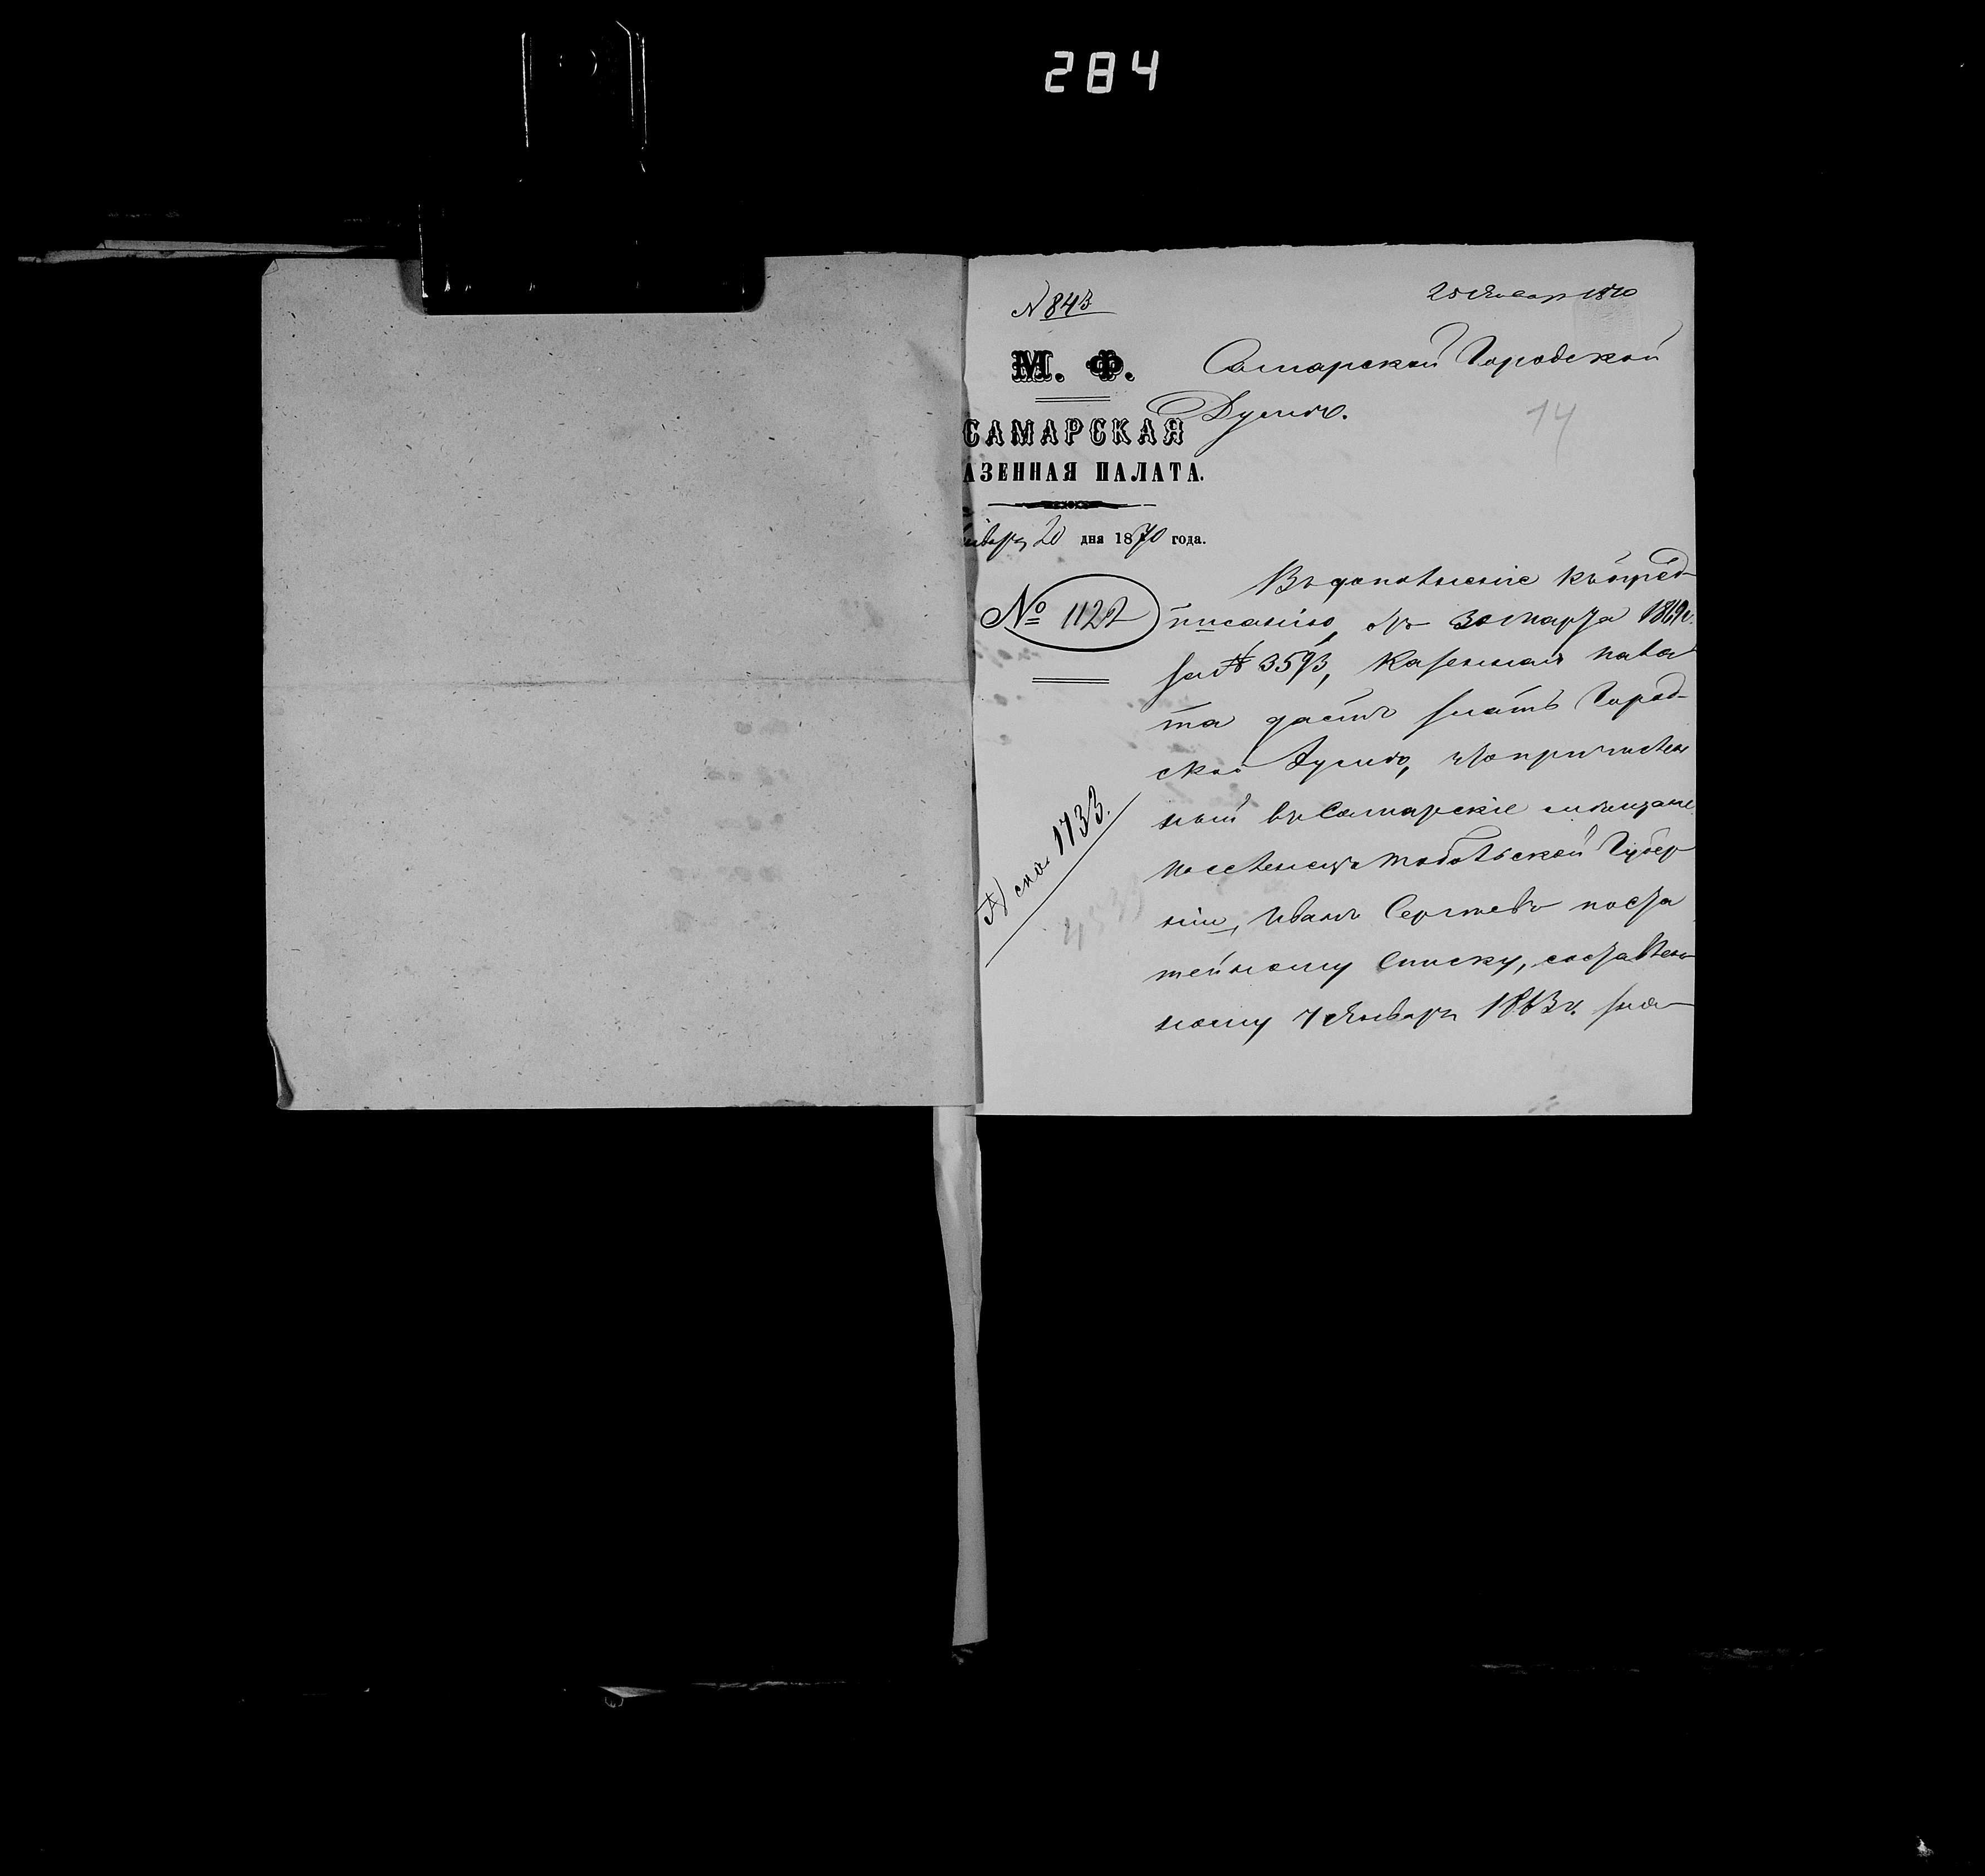 284
N 843
25 Январ 1870
М. Ф.
САМАРСКАЯ
АЗЕННАЯ ПАЛАТА.
нваря 20 дня 1870 года.
№ 1122
Самарской Городской
Думѣ.
14
Въ дополненіе къ пред-
писанію, отъ 30 Марта 1869 г.
за № 3593, Казенная пала
та даетъ знать Город-
ской Думѣ, что причислен
ный въ Самарскіе мѣщане
поселенецъ Тобольской Губер
ніи, Иванъ Сергѣевъ по ста
тейному списку, составлен
ному 7 Января 1863 г. зна
1733.